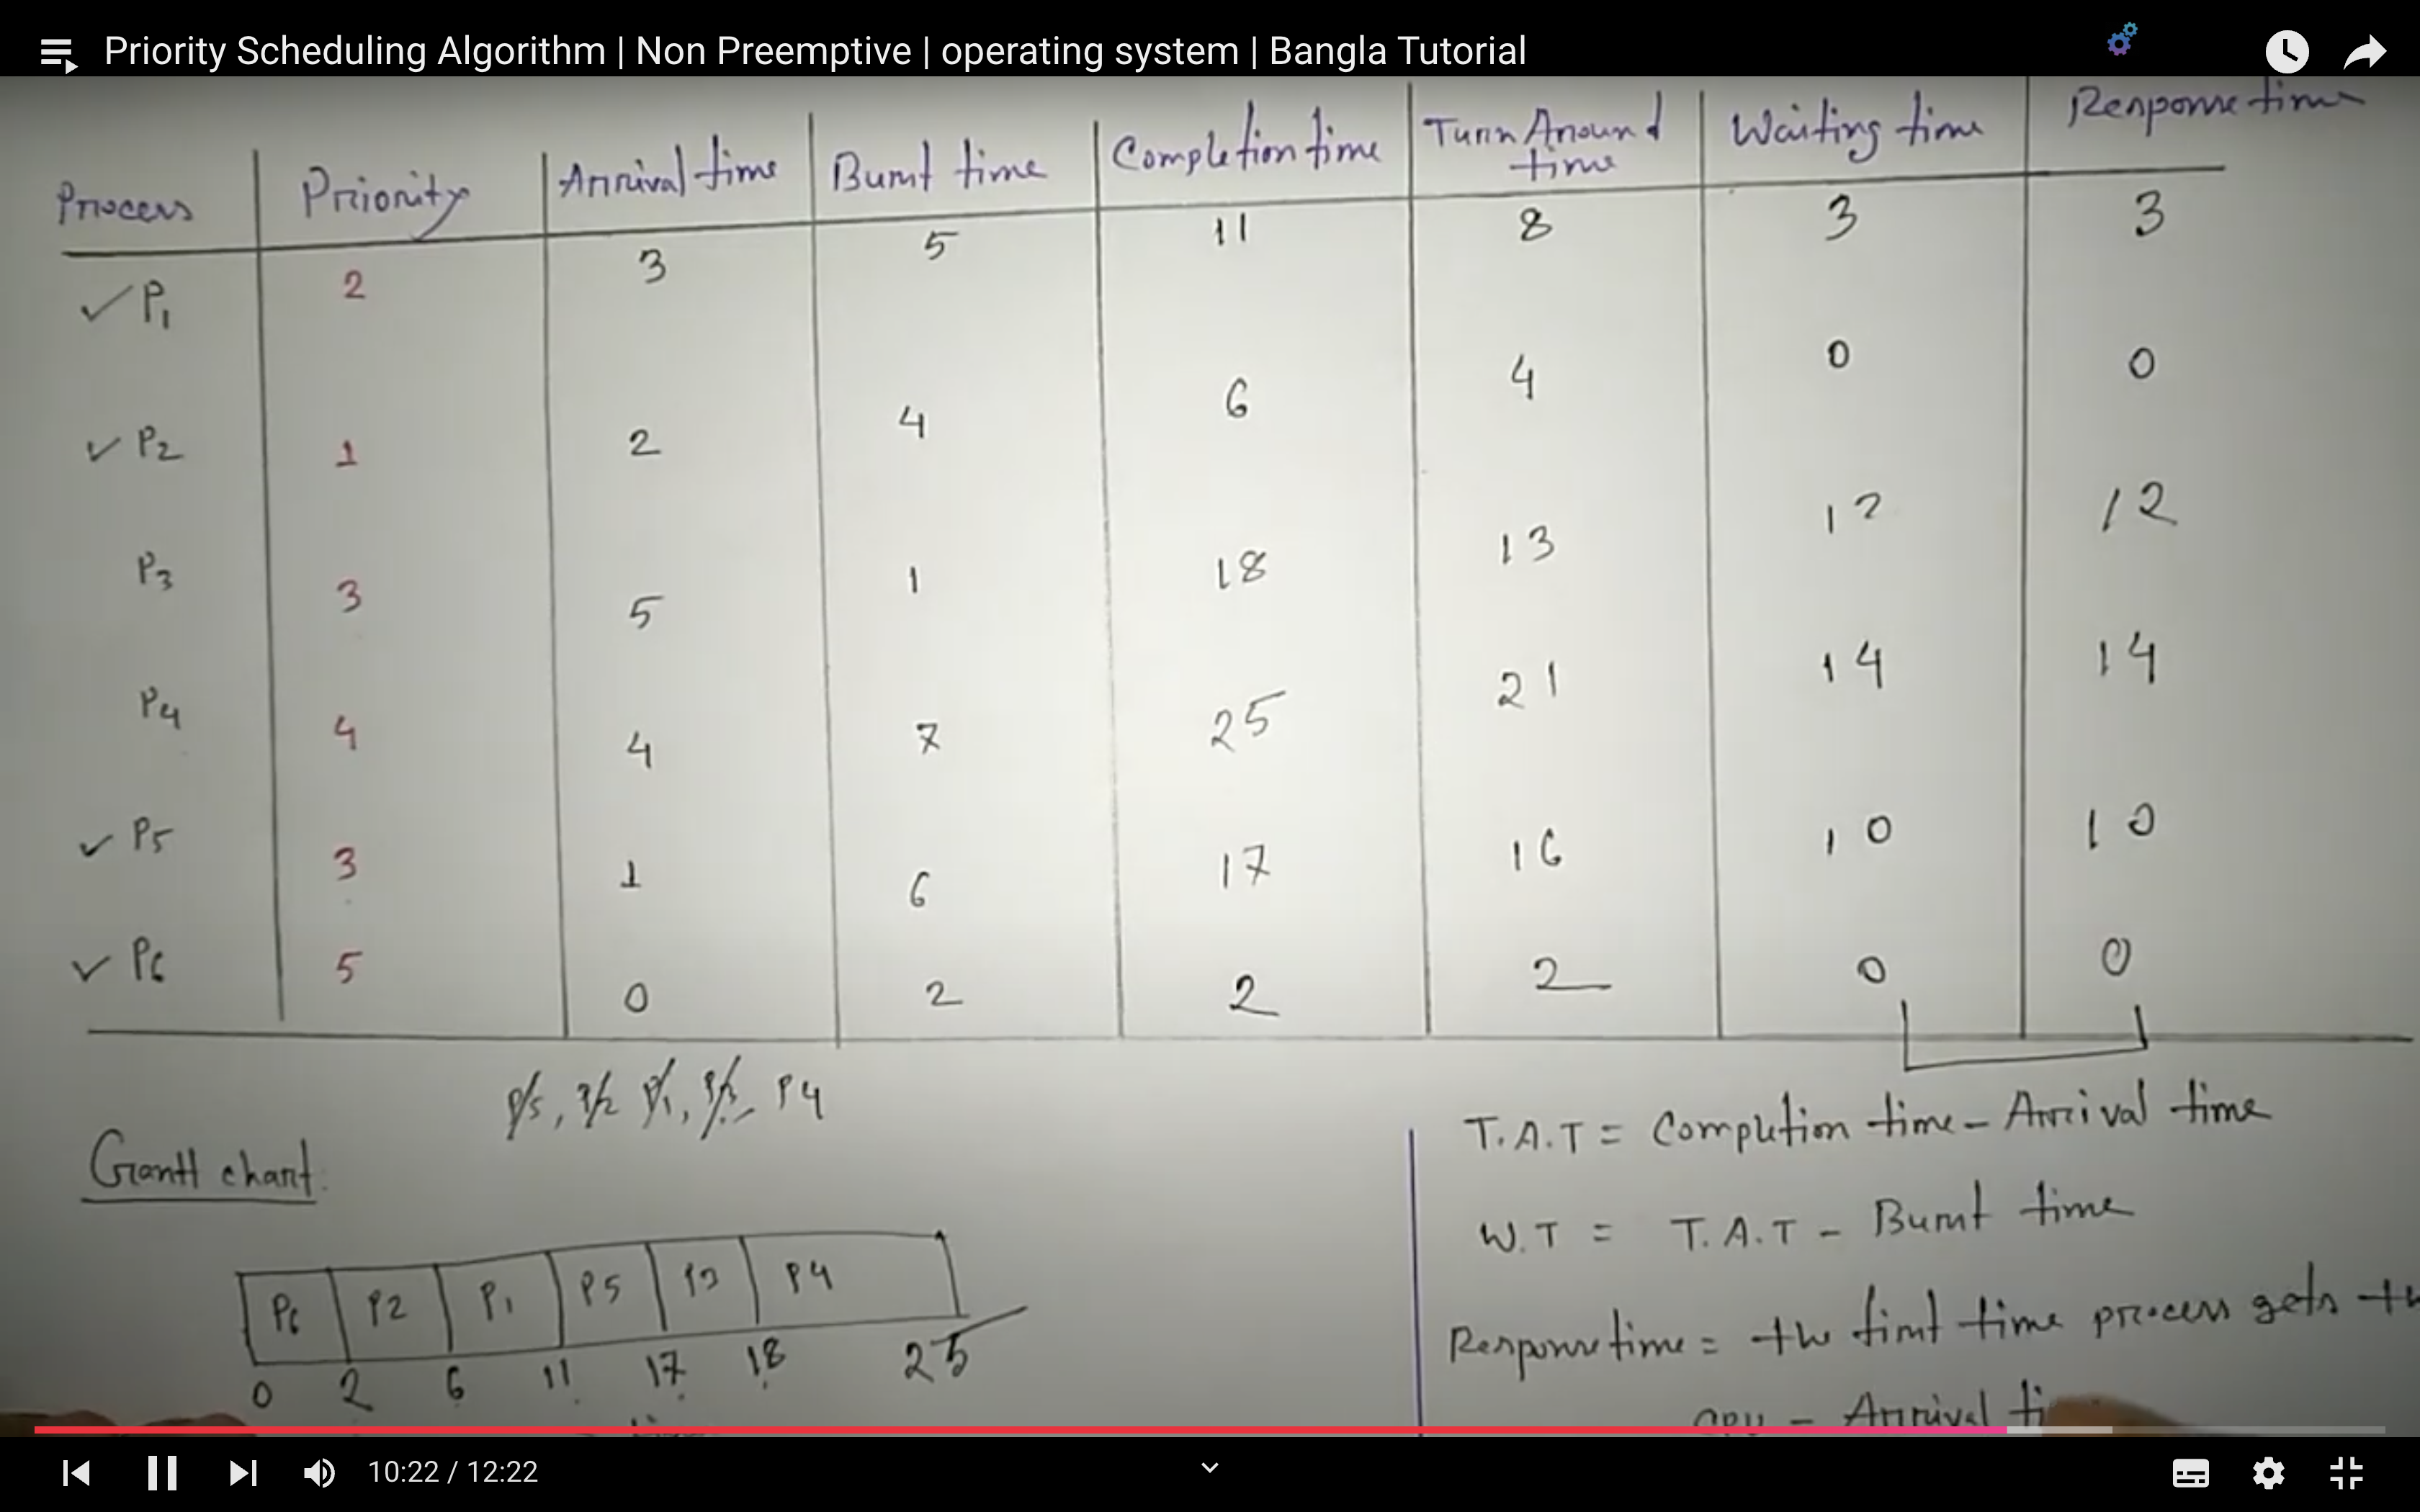 Priority Scheduling Algorithm | Non Preemptive | operating system | Bangla Tutorial
Process Priority Arrival time Burst time Completion time Turn Around time Waiting time Response time
P1 2 3 5 11 8 3 3
P2 1 2 4 6 4 0 0
P3 3 5 1 18 13 12 12
P4 4 4 7 25 21 14 14
P5 3 1 6 17 16 10 10
P6 5 0 2 2 2 0 0
P5, P2 P1, P3 P4
Gantt chart:
P6 P2 P1 P5 P3 P4
0 2 6 11 17 18 25
T.A.T = Completion time - Arrival time
W.T = T.A.T - Burst time
Response time = the first time process gets
CPU - Arrival
10:22 / 12:22